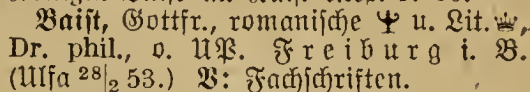 Baist, Gottfr., romanische 🜊 u. Lit. ♛,
Dr. phil., o. UP. Freiburg i. B.
(Ulfa 28|2 53.) V: Fachschriften.